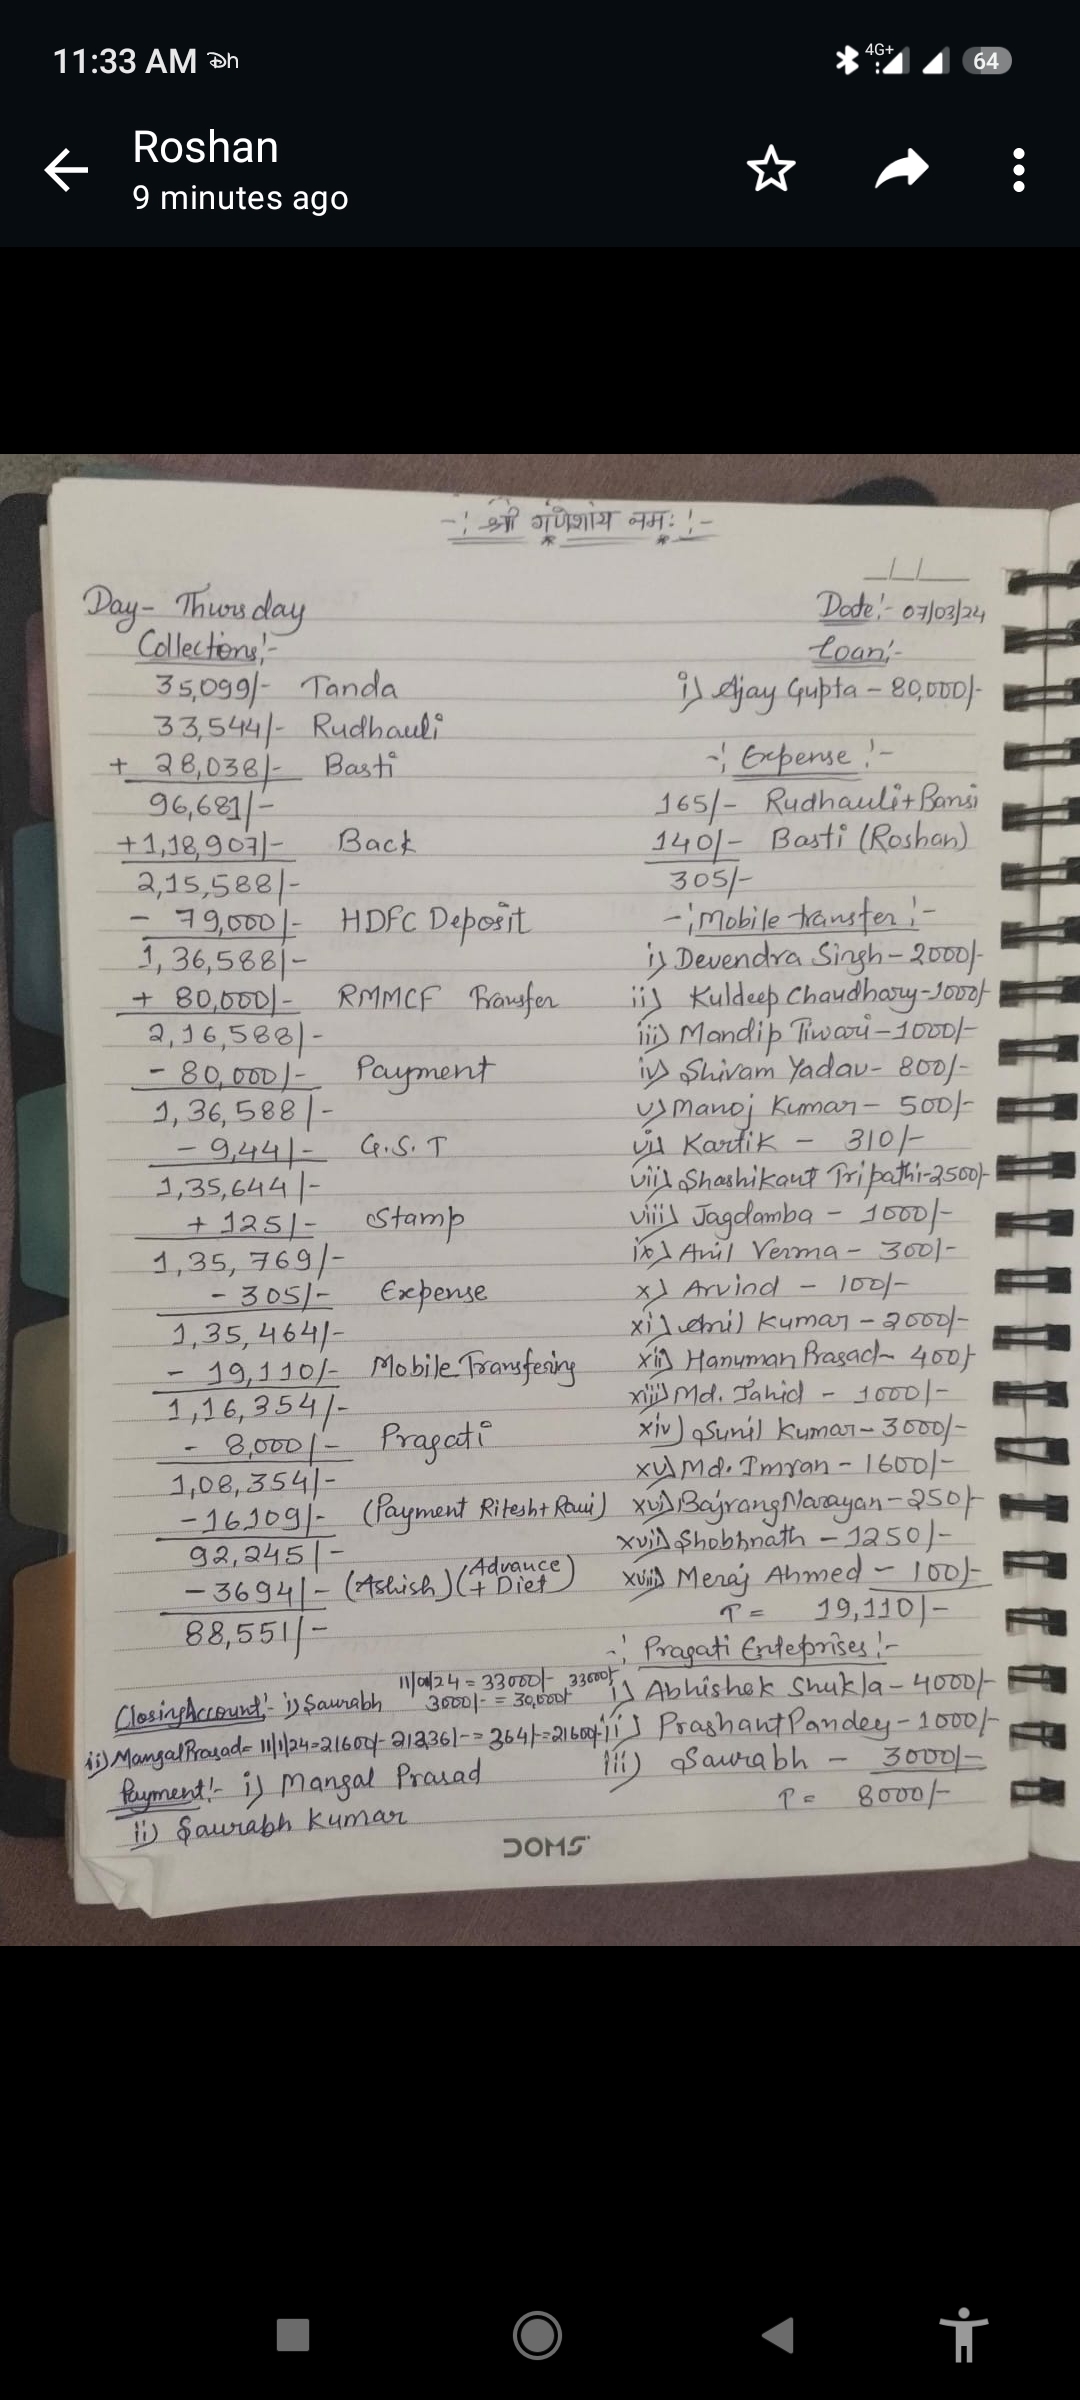 11:33 AM
4G+ 64
Roshan
9 minutes ago
-: श्री गणेशाय नमः :-
Day- Thursday
Date:- 07/03/24
Collections:-
35,099/- Tanda
33,544/- Rudhauli
+ 28,038/- Basti
96,681/-
+1,18,907/- Back
2,15,588/-
- 79,000/- HDFC Deposit
1,36,588/-
+ 80,000/- RMMCF Transfer
2,16,588/-
- 80,000/- Payment
1,36,588/-
- 9,44/- G.S.T
1,35,644/-
+ 125/- Stamp
1,35,769/-
- 305/- Expense
1,35,464/-
- 19,110/- Mobile Transfering
1,16,354/-
- 8,000/- Pragati
1,08,354/-
-16109/- (Payment Ritesh+Ravi)
92,245/-
-3694/- (Ashish) (Advance + Diet)
88,551/-
Loan:-
i) Ajay Gupta - 80,000/-
-: Expense :-
165/- Rudhauli+Bansi
140/- Basti (Roshan)
305/-
-: Mobile transfer :-
i) Devendra Singh - 2000/-
ii) Kuldeep Chaudhary-1000/-
iii) Mandip Tiwari-1000/-
iv) Shivam Yadav- 800/-
v) Manoj Kumar- 500/-
vi) Kartik - 310/-
vii) Shashikant Tripathi-2500/-
viii) Jagdamba - 1000/-
ix) Anil Verma - 300/-
x) Arvind - 100/-
xi) Anil Kumar - 2000/-
xii) Hanuman Prasad- 400/-
xiii) Md. Jahid - 1000/-
xiv) Sunil Kumar- 3000/-
xv) Md. Imran - 1600/-
xvi) Bajrang Narayan-250/-
xvii) Shobhnath - 1250/-
xviii) Meraj Ahmed - 100/-
T = 19,110/-
-: Pragati Enteprises :-
i) Abhishek Shukla - 4000/-
ii) Prashant Pandey-1000/-
iii) Saurabh - 3000/-
T = 8000/-
Closing Account:- i) Saurabh 11/01/24 = 33000/- 33000/-
3000/- = 30,000/-
ii) Mangal Prasad= 11/1/24=21600/- 21236/-= 364/-=21600/-
Payment:- i) Mangal Prasad
ii) Saurabh Kumar
DOMS